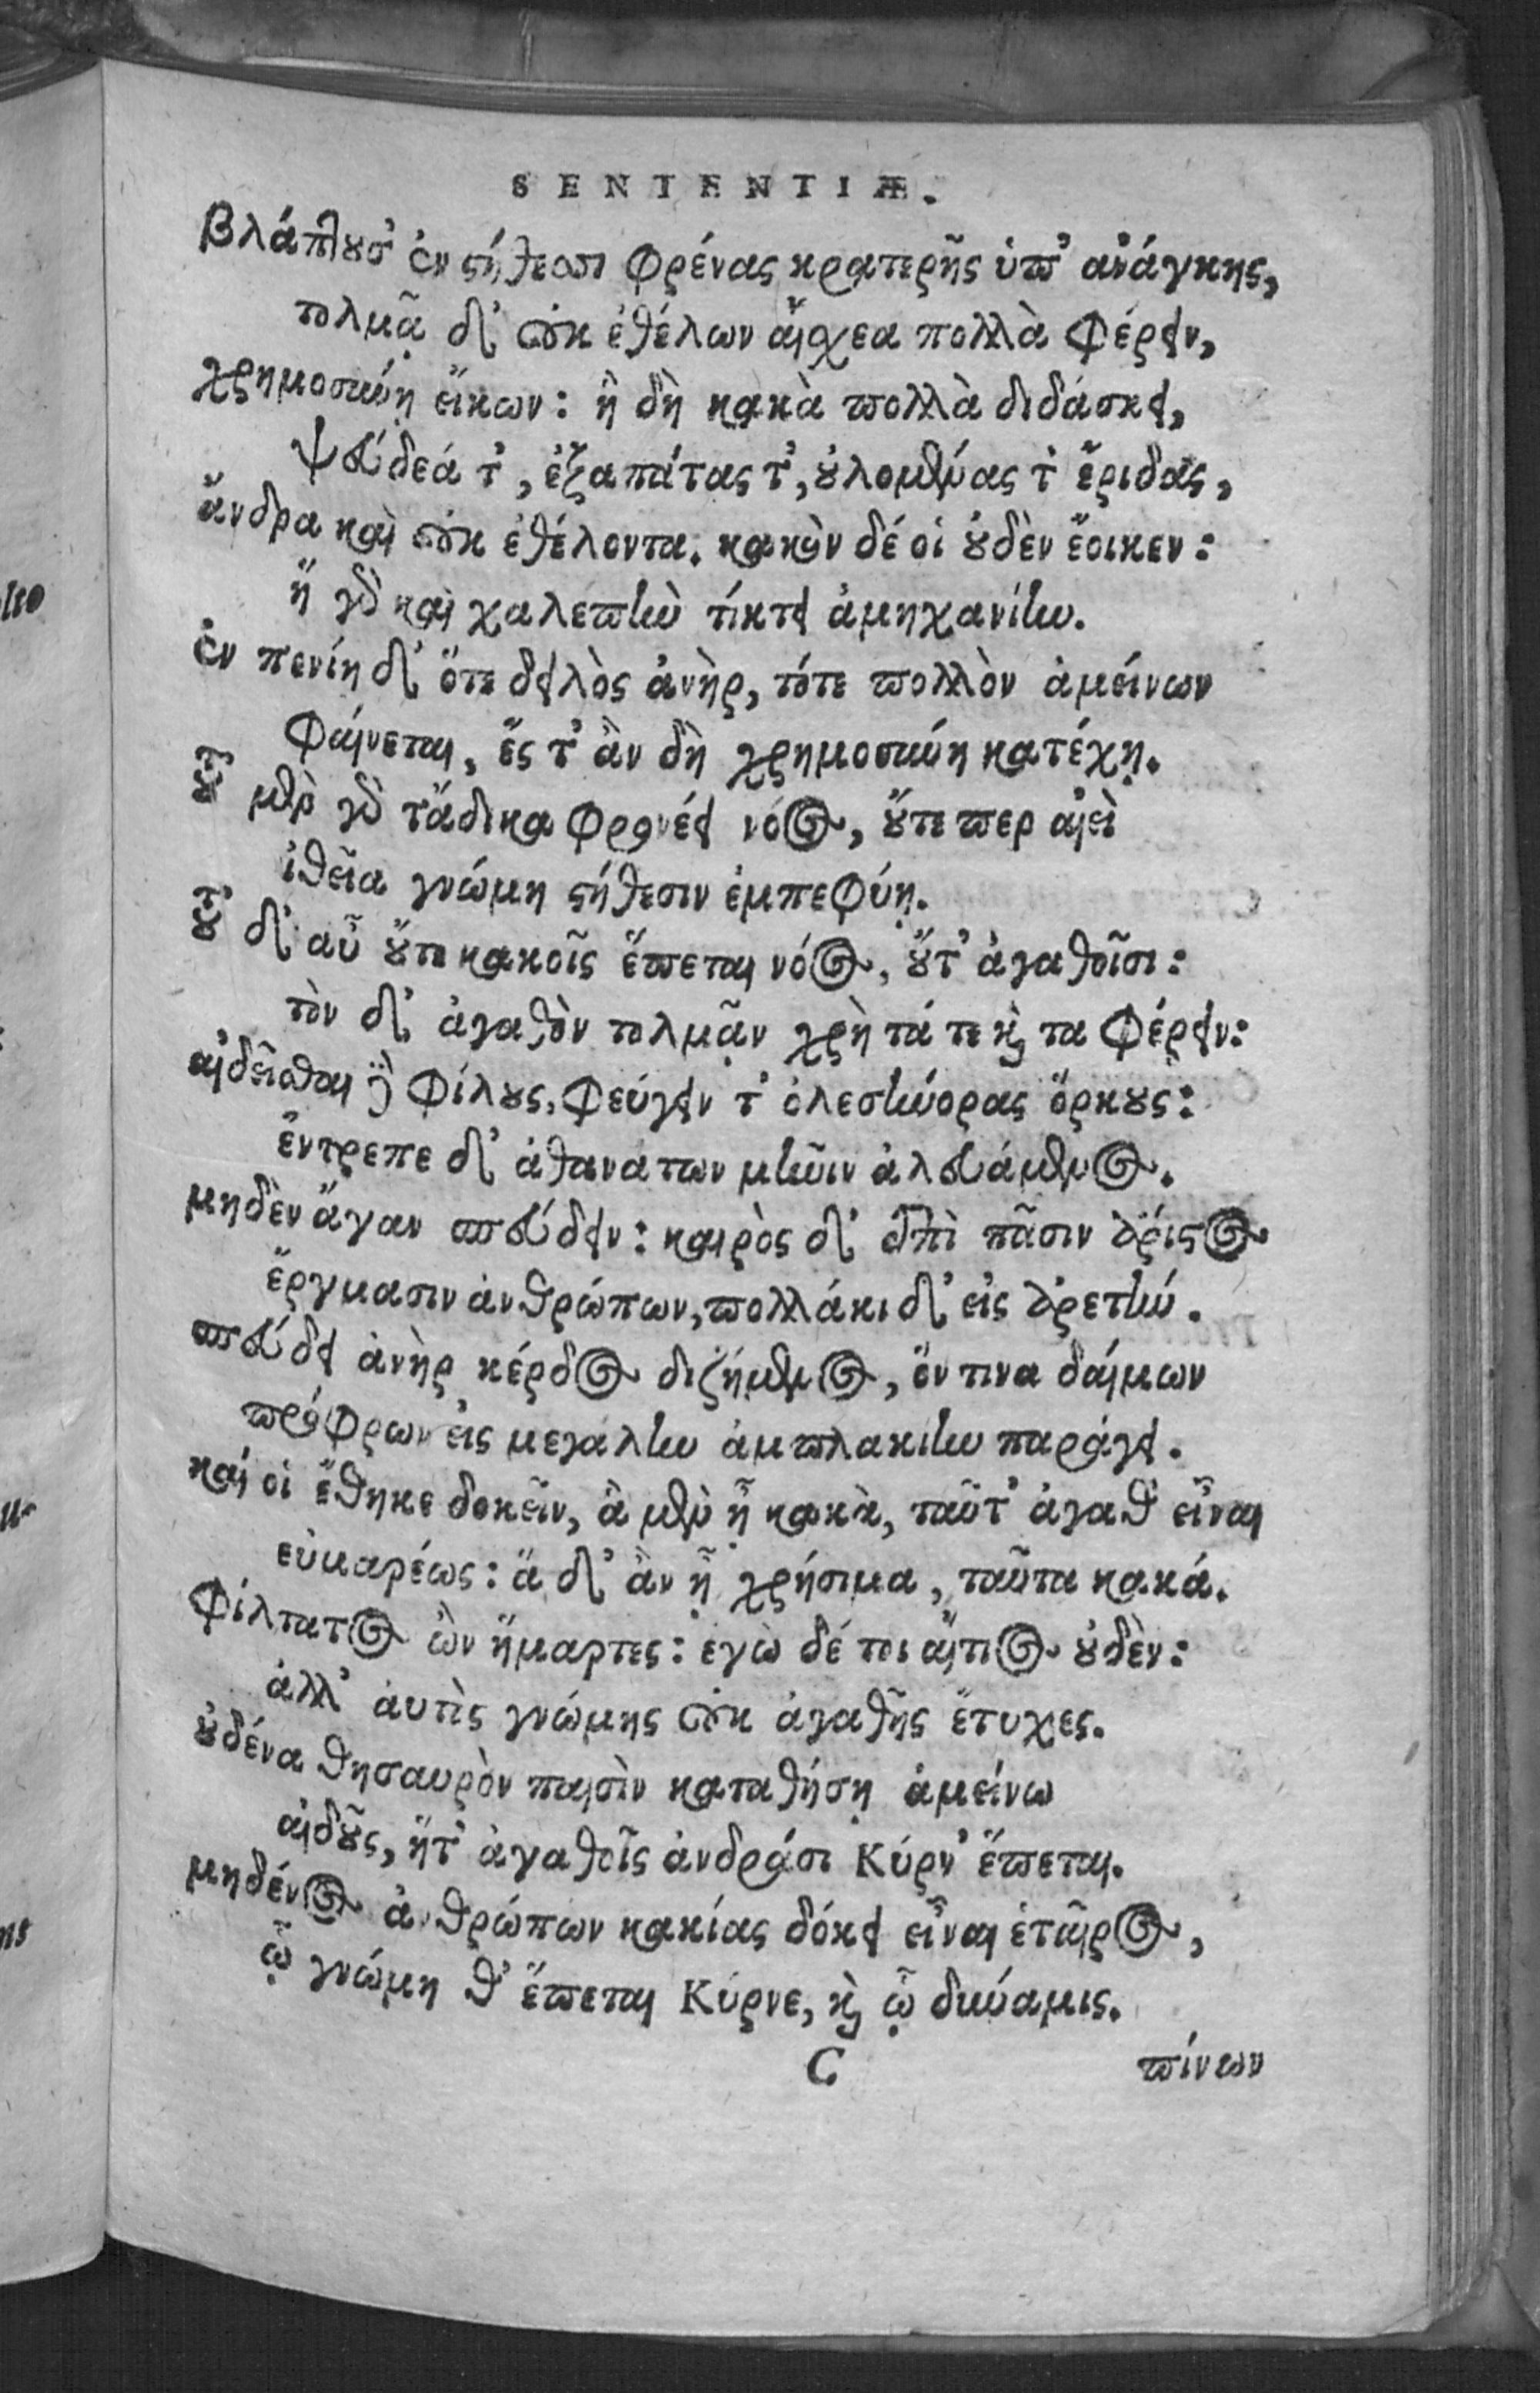 SENTENTIÆ.
βλάπτουσ' ἐν στήθεσσι φρένας κρατερῆς ὑπ' ἀνάγκης,
τολμᾷ δ' οὐκ ἐθέλων αἴσχεα πολλὰ φέρειν,
χρημοσύνῃ εἴκων: ἣ δὴ κακὰ πολλὰ διδάσκει,
ψεύδεά τ', ἐξαπάτας τ', οὐλομένας τ' ἔριδας,
ἄνδρα καὶ οὐκ ἐθέλοντα. κακὸν δέ οἱ οὐδὲν ἔοικεν:
ἣ γὰρ καὶ χαλεπὴν τίκτει ἀμηχανίην.
ἐν πενίῃ δ' ὅτε δειλὸς ἀνὴρ, τότε πολλὸν ἀμείνων
φαίνεται, ἔς τ' ἂν δὴ χρημοσύνη κατέχῃ.
οὔτ μὲν γὰρ τἄδικα φρονέει νόος, οὔτε περ αἰεὶ
ἰθεῖα γνώμη στήθεσιν ἐμπεφύῃ.
οὔτ' δ' αὖ οὔτε κακοῖς ἕπεται νόος, οὔτ' ἀγαθοῖσι:
τὸν δ' ἀγαθὸν τολμᾷν χρὴ τά τε καὶ τα φέρειν:
αἰδεῖσθαι δὲ φίλους, φεύγειν τ' ὀλεσήνορας ὅρκους:
ἔντρεπε δ' ἀθανατων μῆνιν ἀλευάμενος.
μηδὲν ἄγαν σπεύδειν: καιρὸς δ' ἐπὶ πᾶσιν ἄριστος
ἔργμασιν ἀνθρώπων, πολλάκι δ' εἰς ἀρετήν.
σπεύδει ἀνὴρ κέρδος διζήμενος, ὅν τινα δαίμων
πρόφρων εἰς μεγάλην ἀμπλακιην παράγει.
καί οἱ ἔθηκε δοκεῖν, ἃ μὲν ᾖ κακὰ, ταῦτ' ἀγαθ' εἶναι
εὐμαρέως: ἃ δ' ἂν ᾖ χρήσιμα, ταῦτα κακά.
φίλτατος ὢν ἥμαρτες: ἐγὼ δέ τοι αἴτιος οὐδὲν:
ἀλλ' ἀυτὶς γνώμης οὐκ ἀγαθῆς ἔτυχες.
οὐδένα θησαυρὸν παισὶν καταθήσῃ ἀμείνω
αἰδοῦς, ἥτ' ἀγαθοῖς ἀνδράσι Κύρν' ἕπεται.
μηδένος ἀνθρώπων κακίας δόκει εἶναι ἑταῖρος,
ᾧ γνώμη θ' ἕπεται Κύρνε, καὶ ᾧ δύναμις.
C πίνων